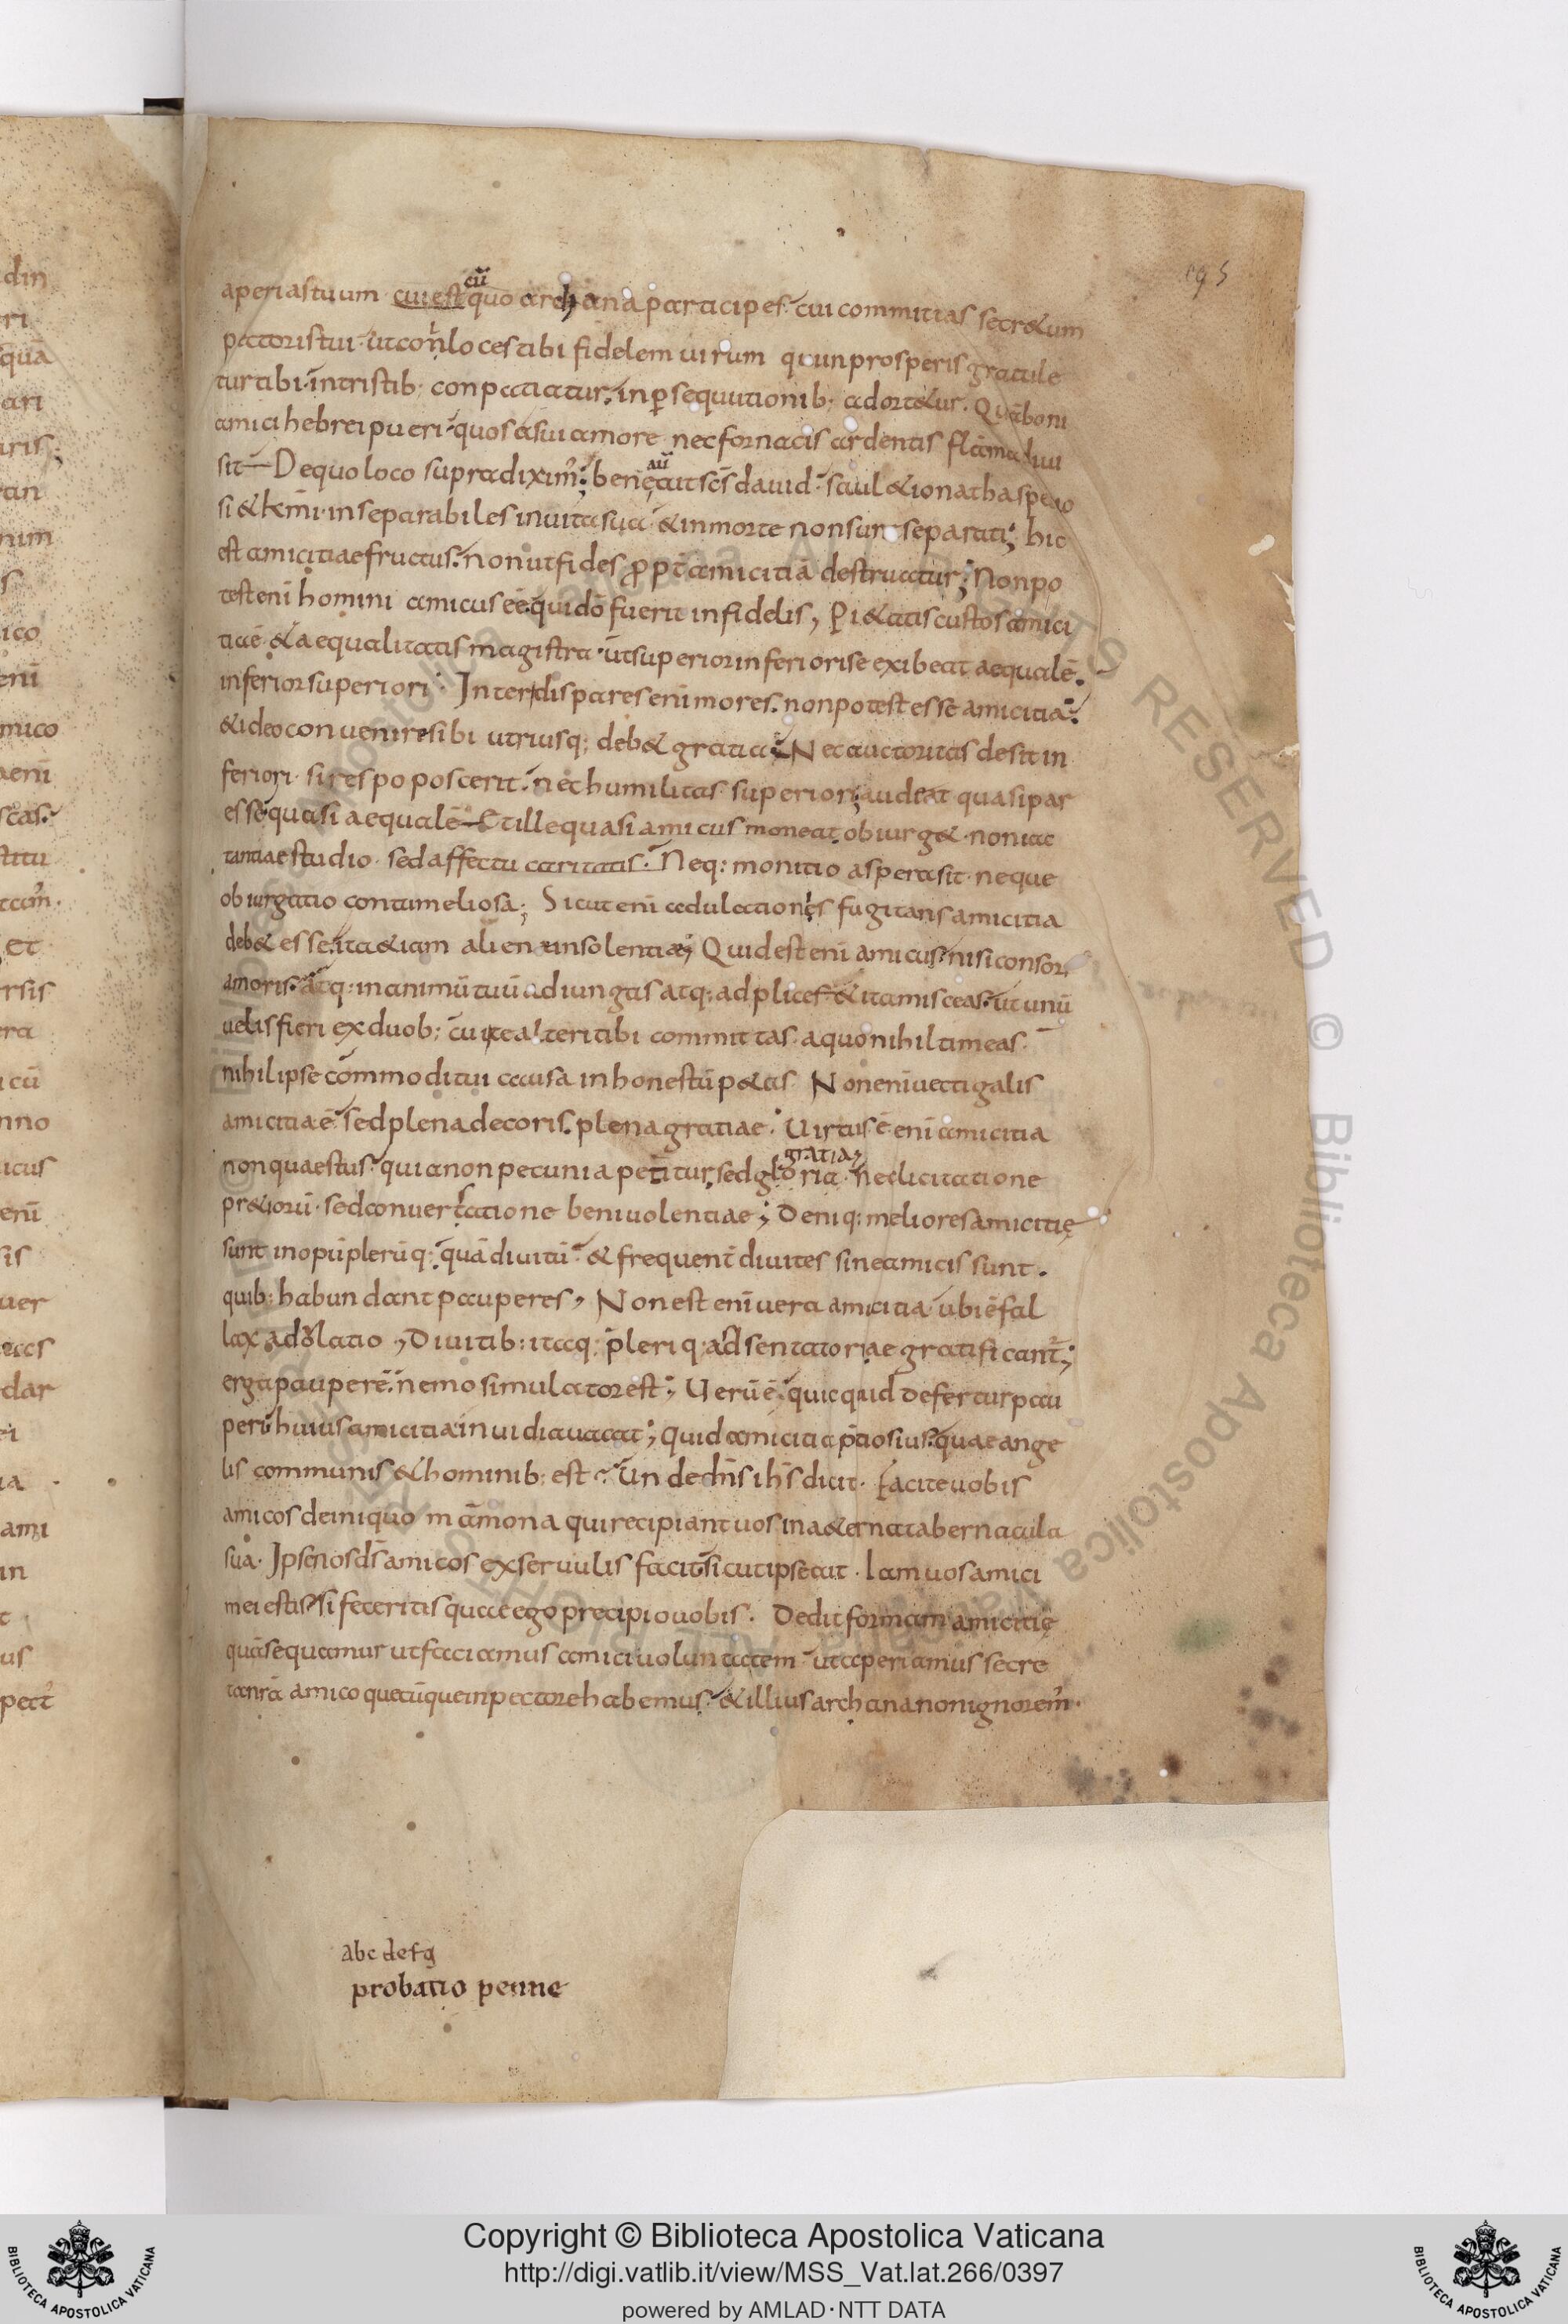 195
aperiastuum cui est cū quo archana participes. cui committas secr&um
pectoris tui. ut conloces tibi fidelem uirum qui in prosperis gratule
tur tibi. in tristib; conpatiatur. in p̱sequutionib; adort&ur. Quā boni
amici hebrei pueri quos a sui amore nec fornacis ardentis flāma diui
sit Dequo loco supra diximꝰ; bene aū ait scs̄ dauid. saul & ionathas speio
si & kmī. inseparabiles in uita sua & in morte non sunt separati; hic
est amicitiae fructus. non ut fides ꝓpt̄ amicitiā destruatur; Non po
test enī homini amicus eē. qui dō fuerit infidelis, Pi&atis custos amici
tia ē & aequalitatis magistra. ut superior inferiori se exibeat aequalē.
inferior superiori. Inter dispares enī mores. non potest esse amicitia.
& ideo conuenire sibi utriusq; deb& gratia. Nec auctoritas desit in
feriori. si res poposcerit. nec humilitas superiori; audeat quasi par
esse quasi aequalē Et ille quasi amicus moneat. obiurg&. non iac
tantiae studio. sed affectu caritatis. Neq; monitio aspera sit. neque
obiurgatio contumeliosa; Sicut enī adulationes fugitans amicitia
deb& esse. ita &iam aliena insolentiae; Quid est enī amicus. nisi consors
amoris. Atq; in animū tuū adiungas atq; adplices & ita misceas. ut unū
uelis fieri ex duob; cui te alteri tibi committas. a quo nihil timeas.
nihil ipse commodi tui causa inhonestū p&as. Non enī uectigalis
amicitia ē. sed plena decoris. plena gratiae. Uirtus ē enī amicitia
non quaestus. quia non pecunia petitur, sed gloria gratia, nec licitatione
pr&iorū. sed conuersatione beniuolentiae; Deniq; meliores amicitię
sunt inopū plerūq; quā diuitū. & frequent̄ diuites sine amicis sunt.
quib; habundant pauperes, Non est enī uera amicitia ubi ē fal
lax adolatio, Diuitib; itaq; pleriq; adsentatoriae gratificant̄;
erga pauperē. nemo simulator est; Uerū ē. quicquid defertur pau
peri. huius amicitia inuidia uacat; quid amicitia p̄tiosius. quae ange
lis communis & hominib; est. Unde dn̄s ih̄s dicit. Facite uobis
amicos de iniquo māmona qui recipiant uos in a&erna tabernacula
sua. Ipse nos ds̄ amicos ex seruulis facit. sicut ipse ait. Iam uos amici
mei estis. si feceritis quae ego precipio uobis. Dedit formam amicitię
quā sequamur ut faciamus amici uoluntatem. ut aperiamus secre
ta nr̄a amico quecūque in pectore habemus. & illius archana non ignoremꝰ.
abcdefg
probatio penne
din
ri
quā
ari
uris;
an
num
s
ico
enī
mico
aenī
scas.
titu
et
rsis
era
icū
nno
icus
enī
sis
uer
dar
ei
ia
ami
in
us
Copyright © Biblioteca Apostolica Vaticana
http://digi.vatlib.it/view/MSS_Vat.lat.266/0397
powered by AMLAD·NTT DATA
BIBLIOTECA APOSTOLICA VATICANA
BIBLIOTECA APOSTOLICA VATICANA